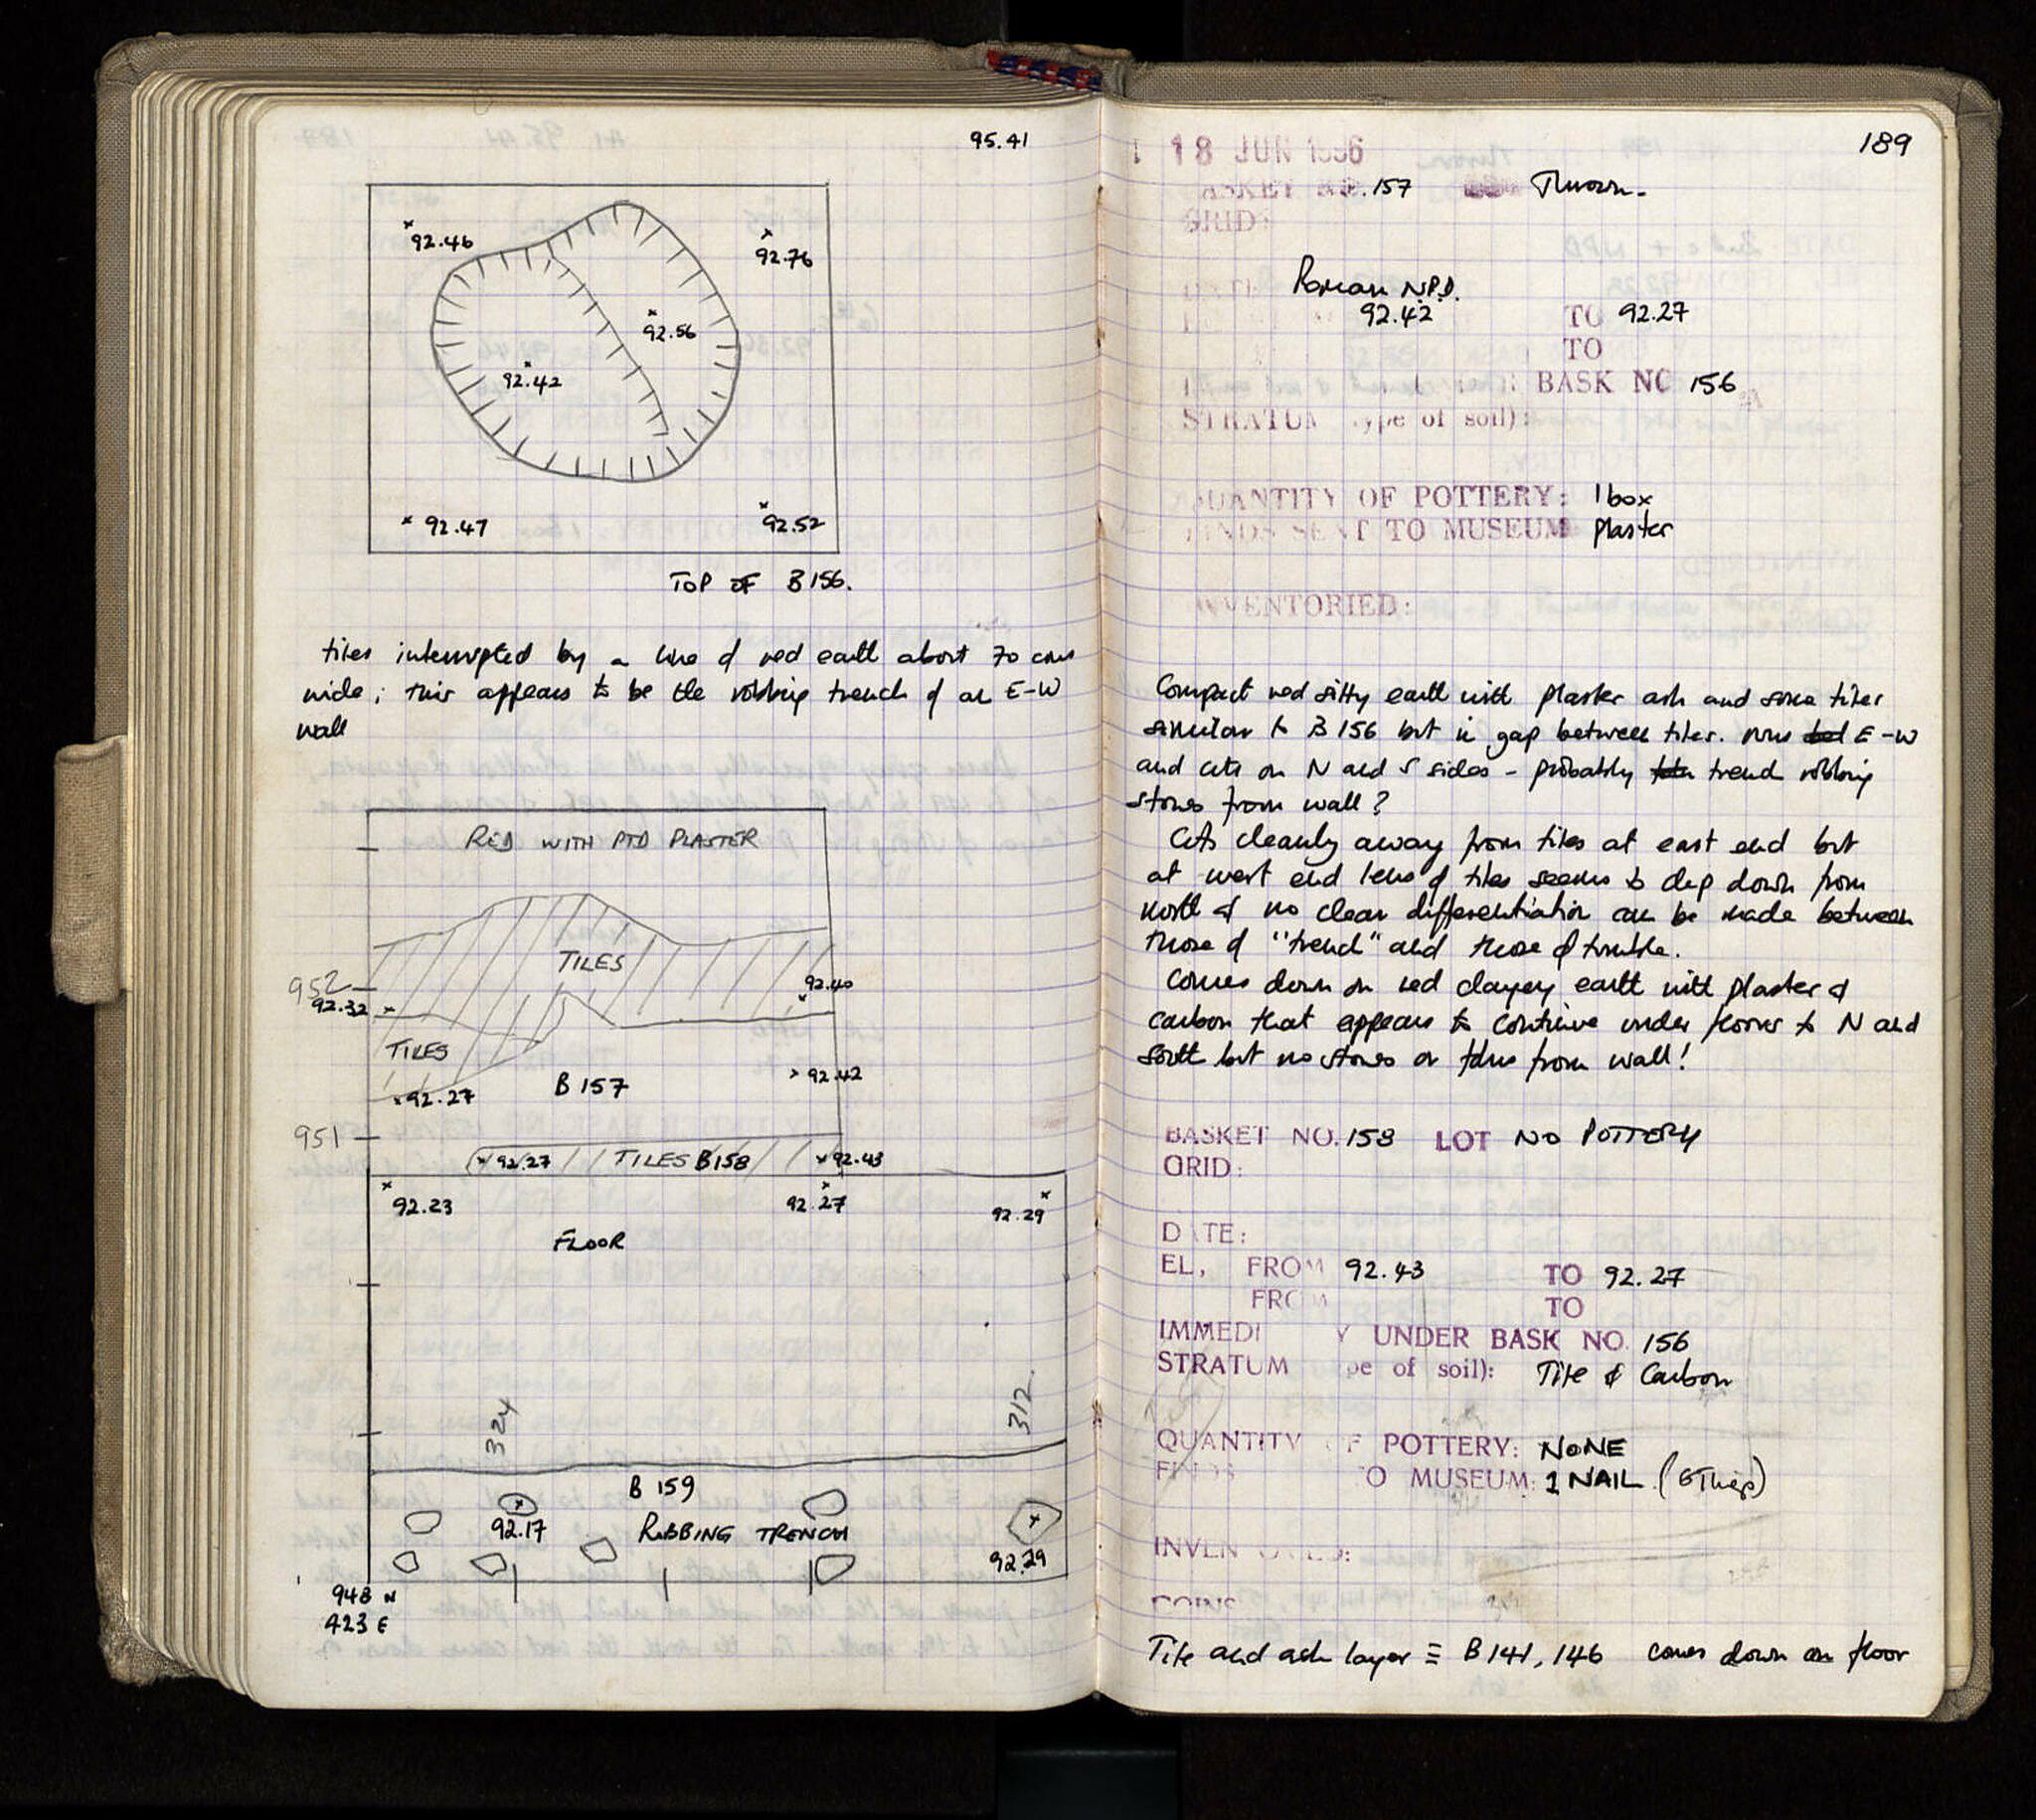 95.41
92.46
92.76
92.56
92.42
92.47
92.52
TOP OF B156.
tiles interrupted by a line of red earth about 70 cms
wide; this appears to be the robbing trench of an E-W
wall
RED WITH PTD PLASTER
TILES
952
92.32
92.40
TILES
92.42
92.27
B 157
951
92.27 TILES B158 92.43
92.23
92.27
92.29
FLOOR
324
312
B 159
92.17 ROBBING TRENCH
92.29
948 N
423 E
189
18 JUN 1996
BASKET NO. 157 Thrown.
GRID:
Roman N.P.D.
92.42 TO 92.27
TO
BASK NO 156
STRATUM ype of soil):
QUANTITY OF POTTERY: 1 box
FINDS SENT TO MUSEUM plaster
INVENTORIED:
Compact red silty earth with plaster ash and some tiles
similar to B156 but in gap between tiles. runs E-W
and cuts on N and S sides - probably trench robbing
stones from wall?
Cuts cleanly away from tiles at east end but
at west end lens of tiles seems to dip down from
north & no clear differentiation can be made between
those of "trench" and those of tumble.
Comes down on red clayey earth with plaster &
carbon that appears to continue under floors to N and
South but no stones or from wall!
BASKET NO. 158 LOT NO POTTERY
GRID:
DATE:
EL, FROM 92.43 TO 92.27
FROM TO
IMMEDI Y UNDER BASK NO. 156
STRATUM pe of soil): Tile & Carbon
QUANTITY OF POTTERY: NONE
FINDS TO MUSEUM: 1 NAIL
INVENTORIED:
COINS
Tile and ash layer ≡ B 141, 146 comes down on floor